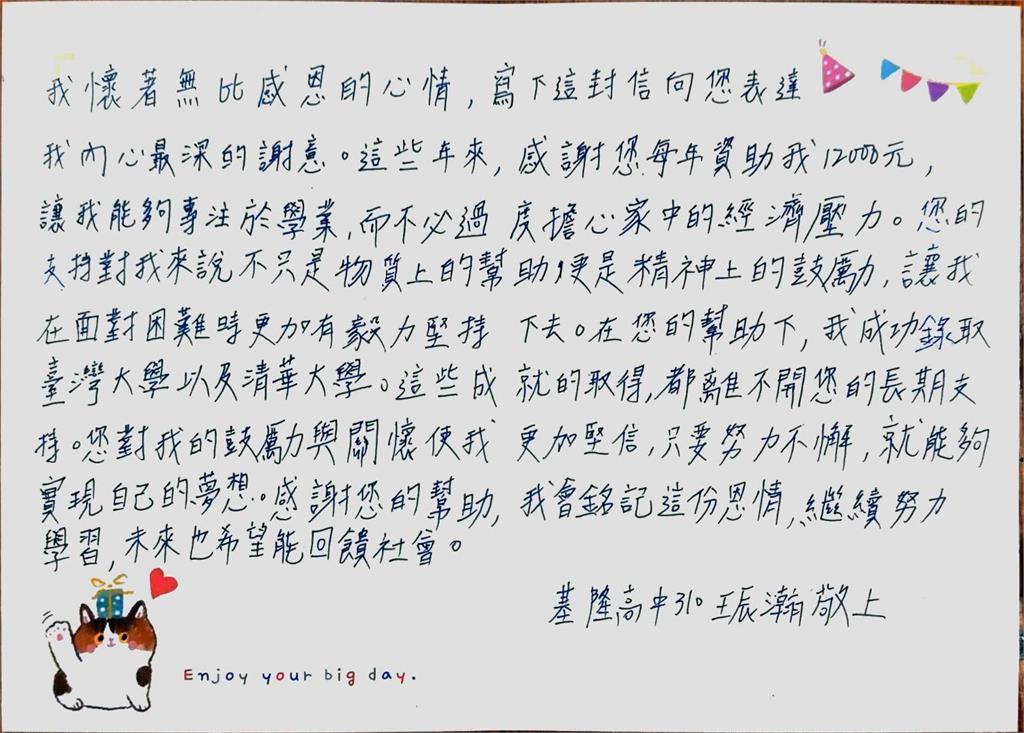 我懷著無比感恩的心情,寫下這封信向您表達
我內心最深的謝意。這些年來,感謝您每年資助我12000元,
讓我能夠專注於學業,而不必過度擔心家中的經濟壓力。您的
支持對我來說不只是物質上的幫助,更是精神上的鼓勵,讓我
在面對困難時更加有毅力堅持下去。在您的幫助下,我成功錄取
臺灣大學以及清華大學。這些成就的取得,都離不開您的長期支
持。您對我的鼓勵與關懷使我更加堅信,只要努力不懈,就能夠
實現自己的夢想。感謝您的幫助,我會銘記這份恩情,繼續努力
學習,未來也希望能回饋社會。
基隆高中310 王辰瀚敬上
Enjoy your big day.